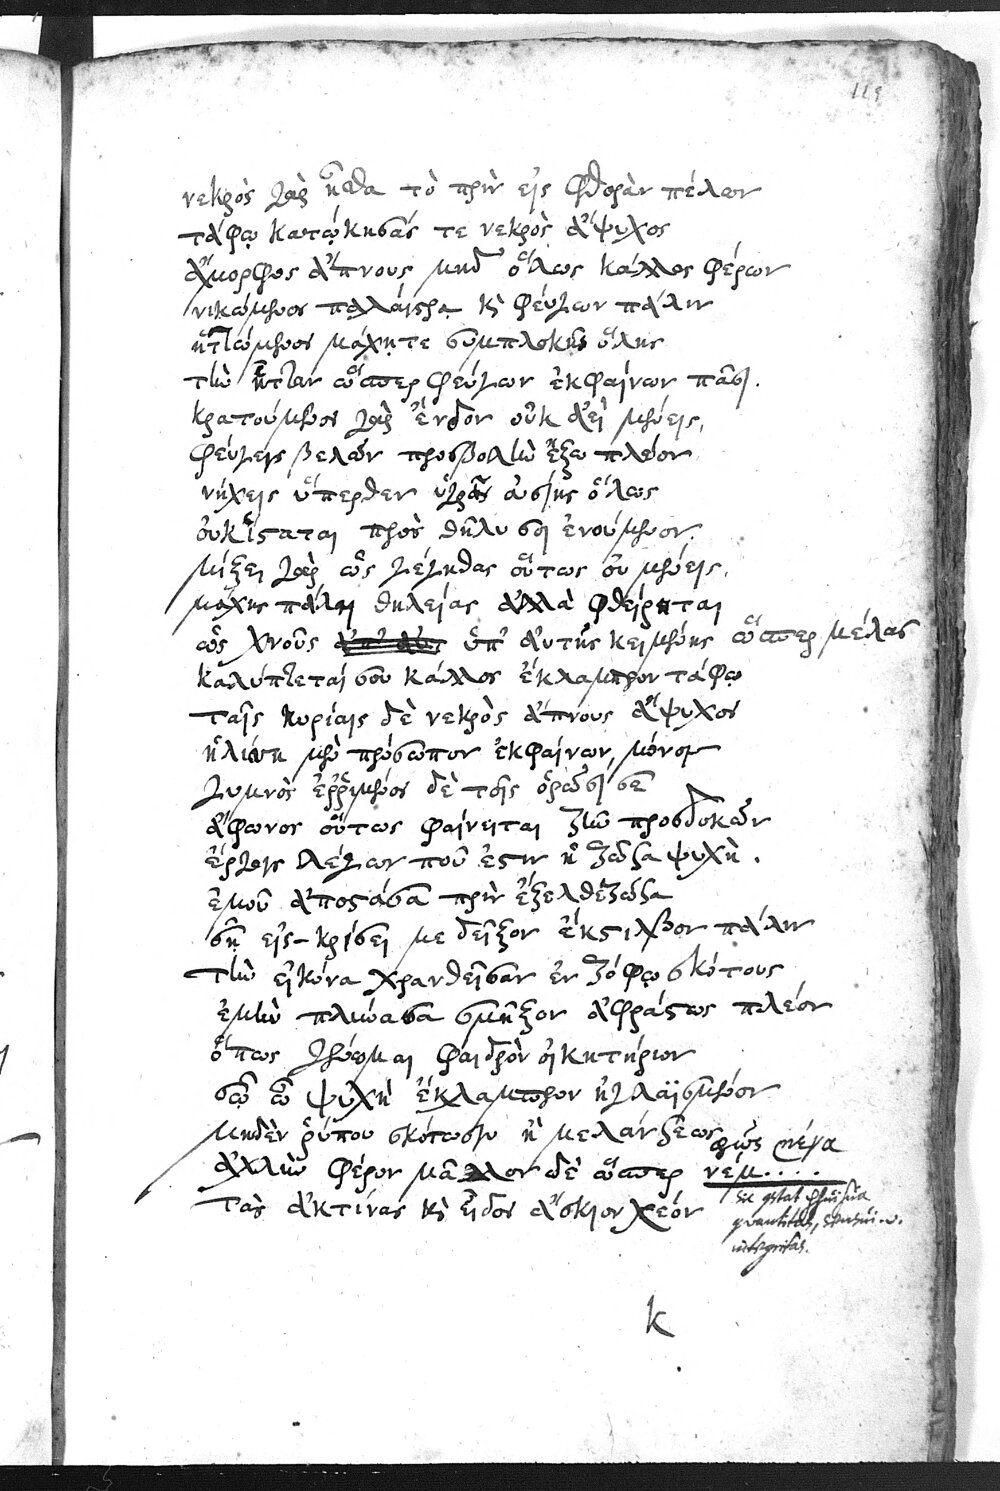 119
νεκρὸς γὰρ ἦσθα τὸ πρὶν εἰς φθορὰν πέλων
τάφῳ κατῴκησάς τε νεκρὸς ἄψυχος
ἄμορφος ἄπνους μηδ' ὅλως κάλλος φέρων
νικώμενος παλαίστρᾳ καὶ φεύγων πάλιν
ἡττώμενος μάχῃ τε συμπλοκῆς ὅλης
τὴν ἧτταν ὥσπερ φεύγων ἐκφαίνων πᾶσι.
κρατούμενος γὰρ ἔνδον οὐκ ἀεὶ μένεις,
φεύγεις βελῶν προσβολὴν ἔξω πλέον
νήχεις ὕπερθεν ὑγρᾶς οὐσίης ὅλως
οὐκ ἵσταται πρὸς θῆλυ σοι ἑνούμενον.
μίξει γὰρ ὡς γέγηθας οὕτως οὐ μένεις.
μάχης πάλαι θηλείας ἀλλὰ φθείρεται
ὡς χνοῦς ὑπ' αὐτῆς κειμένης ὥσπερ μέλας
καλύπτεταί σου κάλλος ἔκλαμπρον τάφῳ
ταῖς κυρίαις δὲ νεκρὸς ἄπνους ἄψυχος
ἥλιον μὲν πρόσωπον ἐκφαίνων, μόνον
γυμνὸς ἐρριμένος δὲ τοῖς ὁρῶσί σε
ἄφωνος οὕτως φαίνεται ζῆν προσδοκῶν
ἔργοις λέγων ποῦ ἐστιν ἡ ζῶσα ψυχὴ.
ἐμοῦ ἀποστᾶσα πρὶν ἐξελθεῖ ζῶσα
σῇ εἰσκρίσει με δεῖξον ἔκστιλβον πάλιν
τὴν εἰκόνα χρανθεῖσαν ἐν ζόφῳ σκότους
ἐμὴν πλύνασα σμῆξον ἀφράστως πλέον
ὅπως γένωμαι φαιδρὸν οἰκητήριον
σῷ ὦ ψυχὴ ἔκλαμπρον ἠγλαϊσμένον
μηδὲν ῥύπου σκότωσιν ἢ μελάνσεως
φῶς μέγα
ἀχλὺν φέρον μᾶλλον δὲ ὥσπερ νέμ....
τὰς ἀκτίνας καὶ εἶδος ἄσκιον χέον
integritas.
k